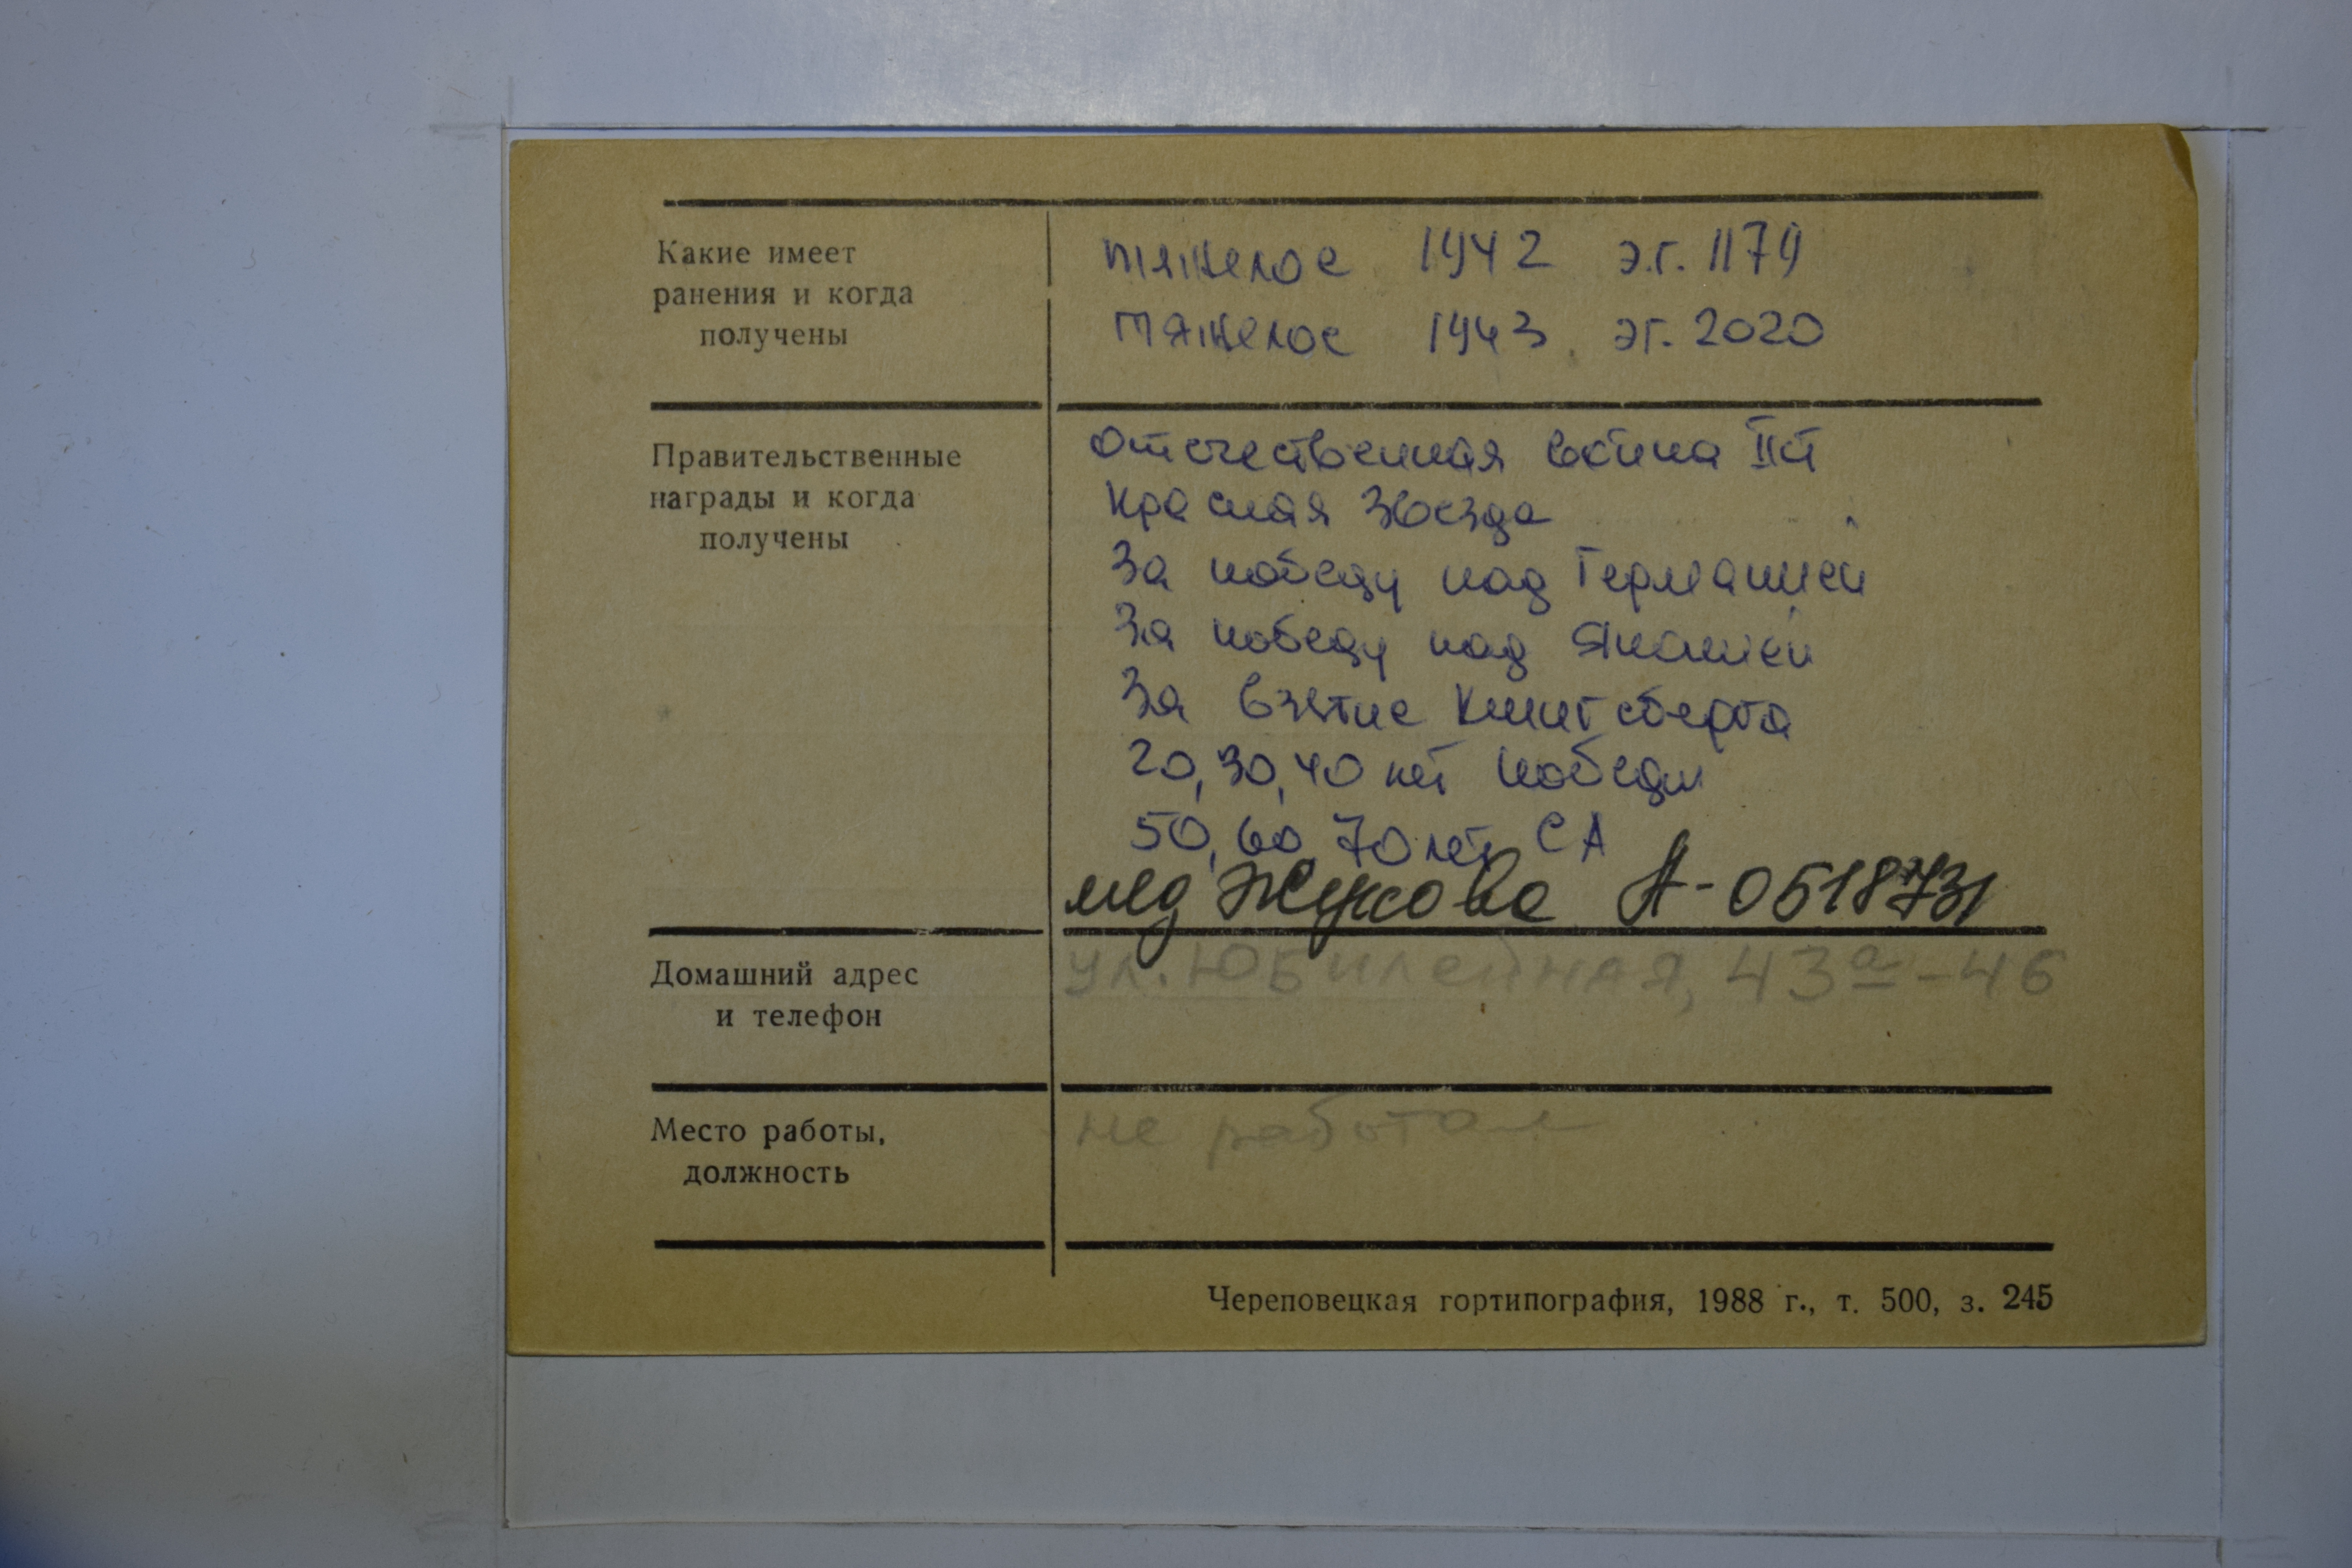 Какие имеет
ранения и когда
получены
тяжелое 1942 э.г. 1179
тяжелое 1943 эг. 2020
Правительственные
награды и когда
получены
Отечественная война II ст
Красная Звезда
За победу над Германией
За победу над Японией
За взятие Кенигсберга
20, 30, 40 лет победы
50, 60 70 лет СА
мед Жукова А-0518731
Домашний адрес
и телефон
ул. Юбилейная, 43а-46
Место работы,
должность
не работал
Череповецкая гортипография, 1988 г., т. 500, з. 245